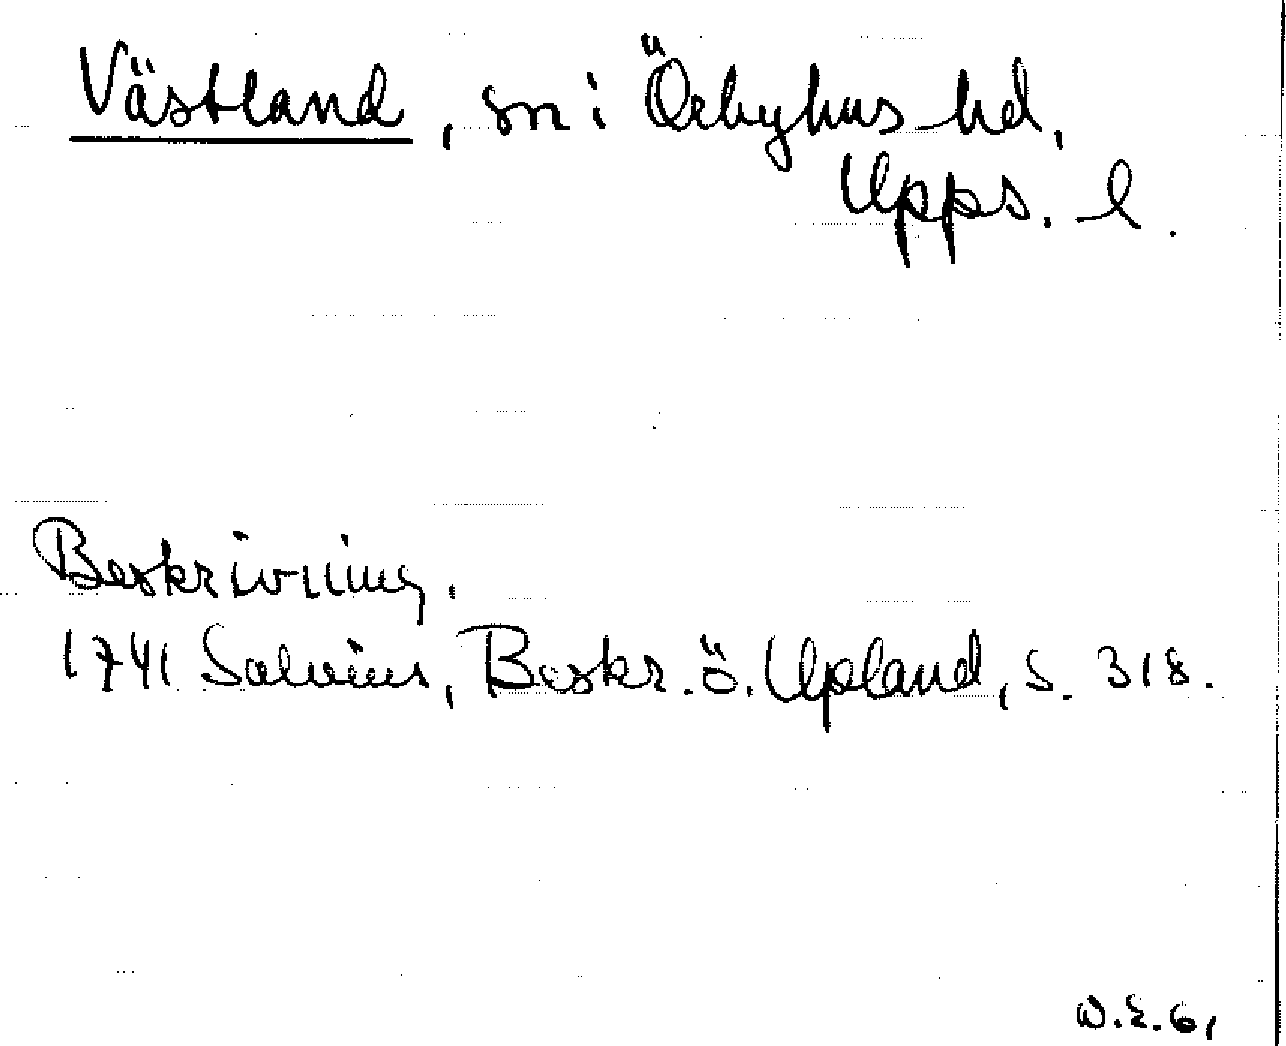 Västland, sn i Örbyhus hd,
Upps. l.
Beskrivning.
1741 Salvius, Beskr. ö. Upland, s. 318.